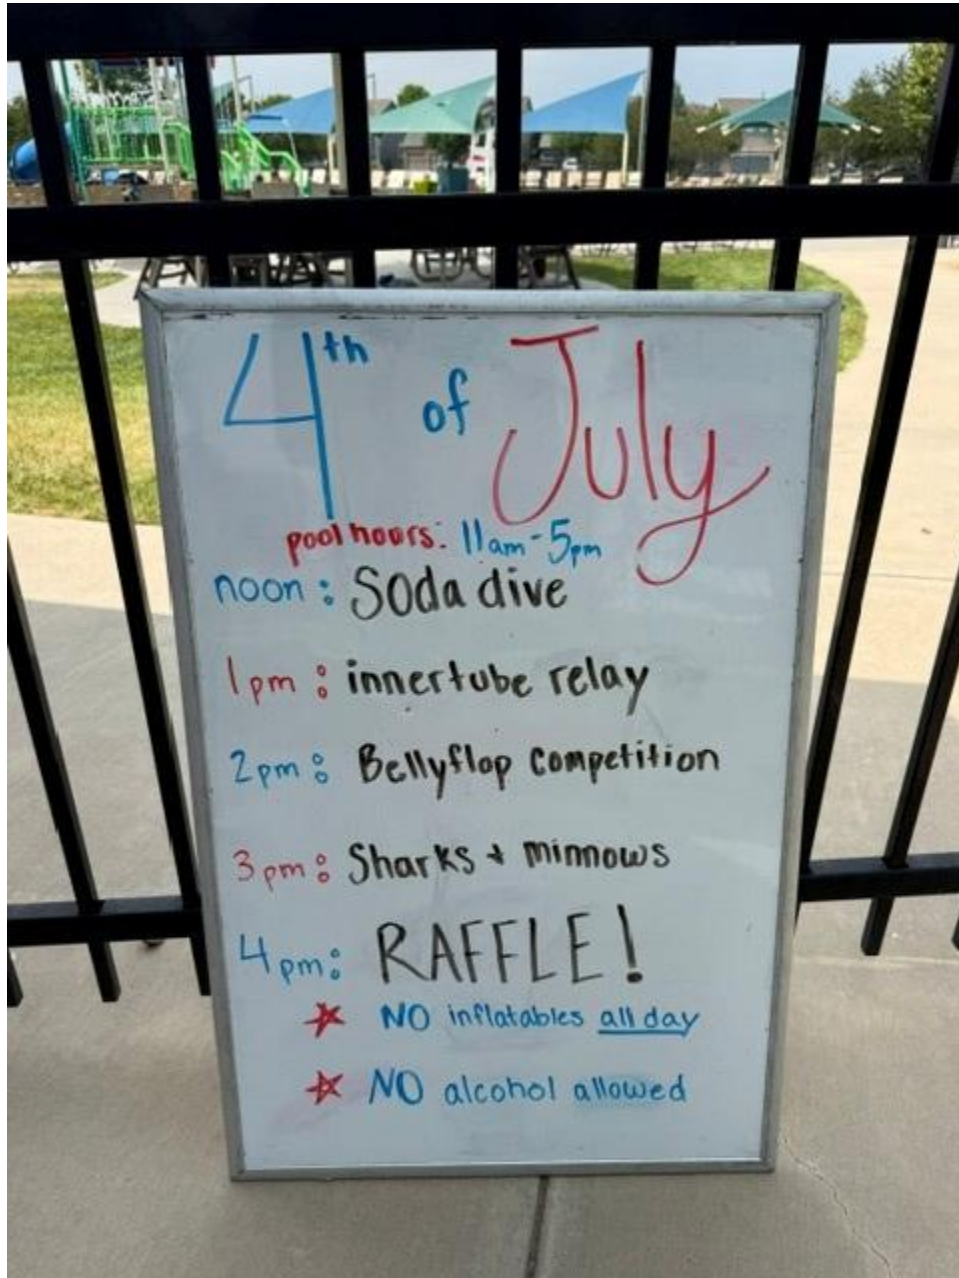 4th of July
pool hours: 11am-5pm
noon: Soda dive
1pm: innertube relay
2pm: Bellyflop competition
3pm: Sharks + minnows
4pm: RAFFLE!
NO inflatables all day
NO alcohol allowed